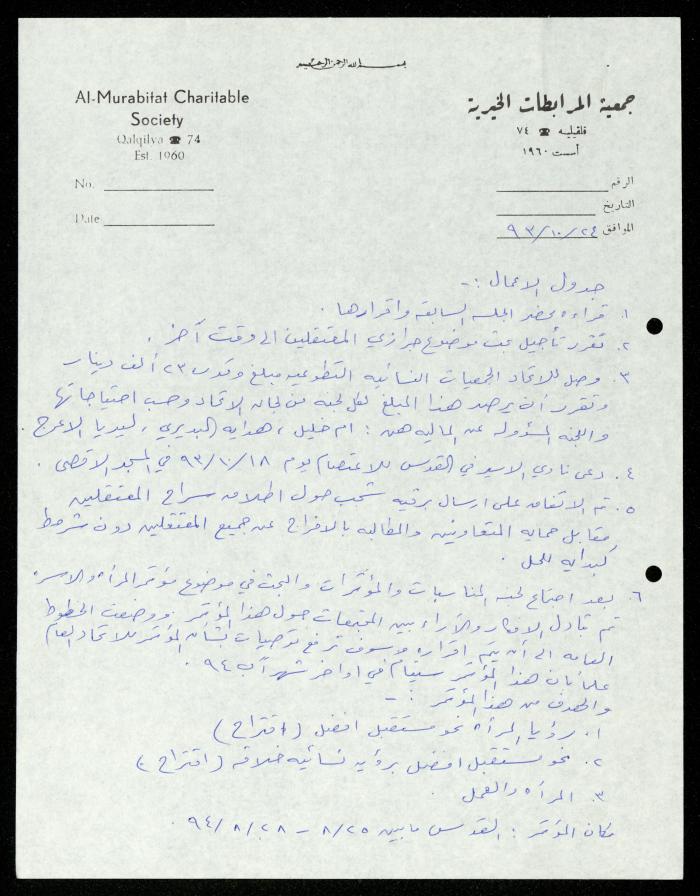 بسم الله الرحمن الرحيم
Al-Murabitat Charitable
Society
Qalqilya ☎ 74
Est. 1960
No.
Date
جمعية المرابطات الخيرية
قلقيليه ☎ ٧٤
أسست ١٩٦٠
الرقم
التاريخ
الموافق ٩٣/١٠/٢٤
جدول الاعمال :-
١. قراءه محضر الجلسه السابقه واقرارها .
٢. تقرر تأجيل بحث موضوع جرازي المعتقلين الى وقت آخر .
٣. وصل للاتحاد الجمعيات النسائيه التطوعيه مبلغ وقدره ٢٣ ألف دينار
وتقرر أن يرصد هذا المبلغ لكل لجنه من لجان الاتحاد وحسب احتياجاتها
واللجنه المسؤوله عن الماليه هن : ام خليل ، هدايه البديري ، ليديا الاعرج .
٤. دعى نادي الاسير في القدس للاعتصام يوم ٩٣/١٠/١٨ في المسجد الاقصى .
٥. تم الاتفاق على ارسال برقيه شجب حول اطلاق سراح المعتقلين
مقابل حمايه المتعاونين والمطالبه بالافراج عن جميع المعتقلين دون شرط
كبدايه للحل .
٦. بعد اجتماع لجنه المناسبات والمؤتمرات والبحث في موضوع مؤتمر المرأه والاسره
تم تبادل الافكار والآراء بين المجتمعات حول هذا المؤتمر ووضعت الخطوط
العامه الى أن يتم اقراره وسوف ترفع توصيات بشأن المؤتمر للاتحاد العام
علماً بأن هذا المؤتمر سيقام في اواخر شهر آب ٩٤ .
والهدف من هذا المؤتمر :-
١. رؤيا المرأه نحو مستقبل افضل (اقتراح)
٢. نحو مستقبل افضل برؤيه نسائيه خلاقه (اقتراح)
٣. المرأه والعمل
مكان المؤتمر : القدس ما بين ٨/٢٥ - ٩٤/٨/٢٨ .